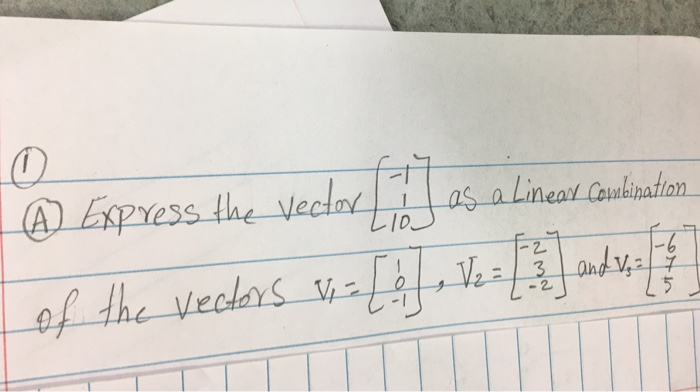 ①
Ⓐ Express the vector [-1 1 10] as a Linear Combination
of the vectors V₁ = [1 0 -1], V₂ = [-2 3 -2] and V₃ = [-6 7 5]